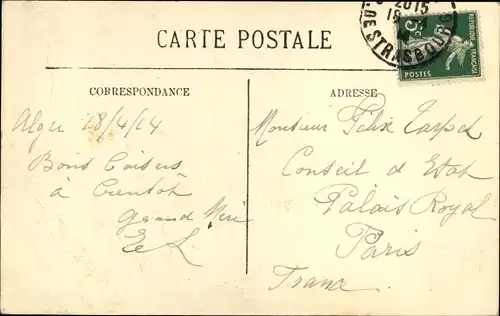 CARTE POSTALE
2015
18
DE STRASBOURG
5c
REPUBLIQUE FRANÇAISE
POSTES
CORRESPONDANCE
Alger 18/4/14
Bons Baisers
à Bientôt
Grand Mère
ADRESSE
Monsieur Félix
Conseil d'Etat
Palais Royal
Paris
France